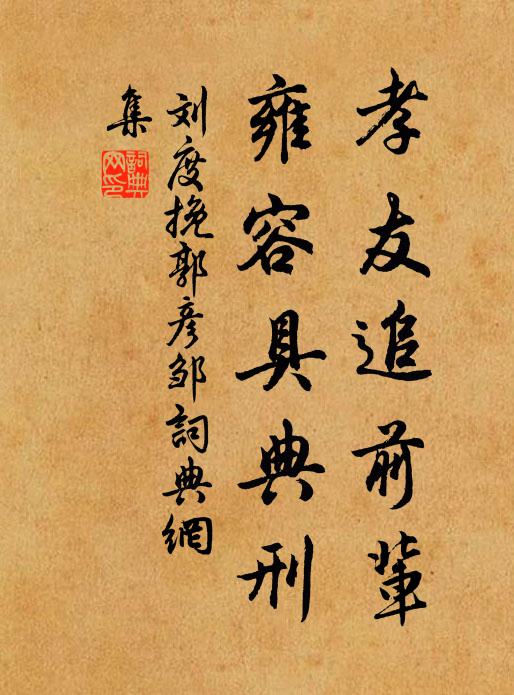 孝友追前輩
雍容具典刑
刘度挽郭彦邹詞典網
集
詞典
网印